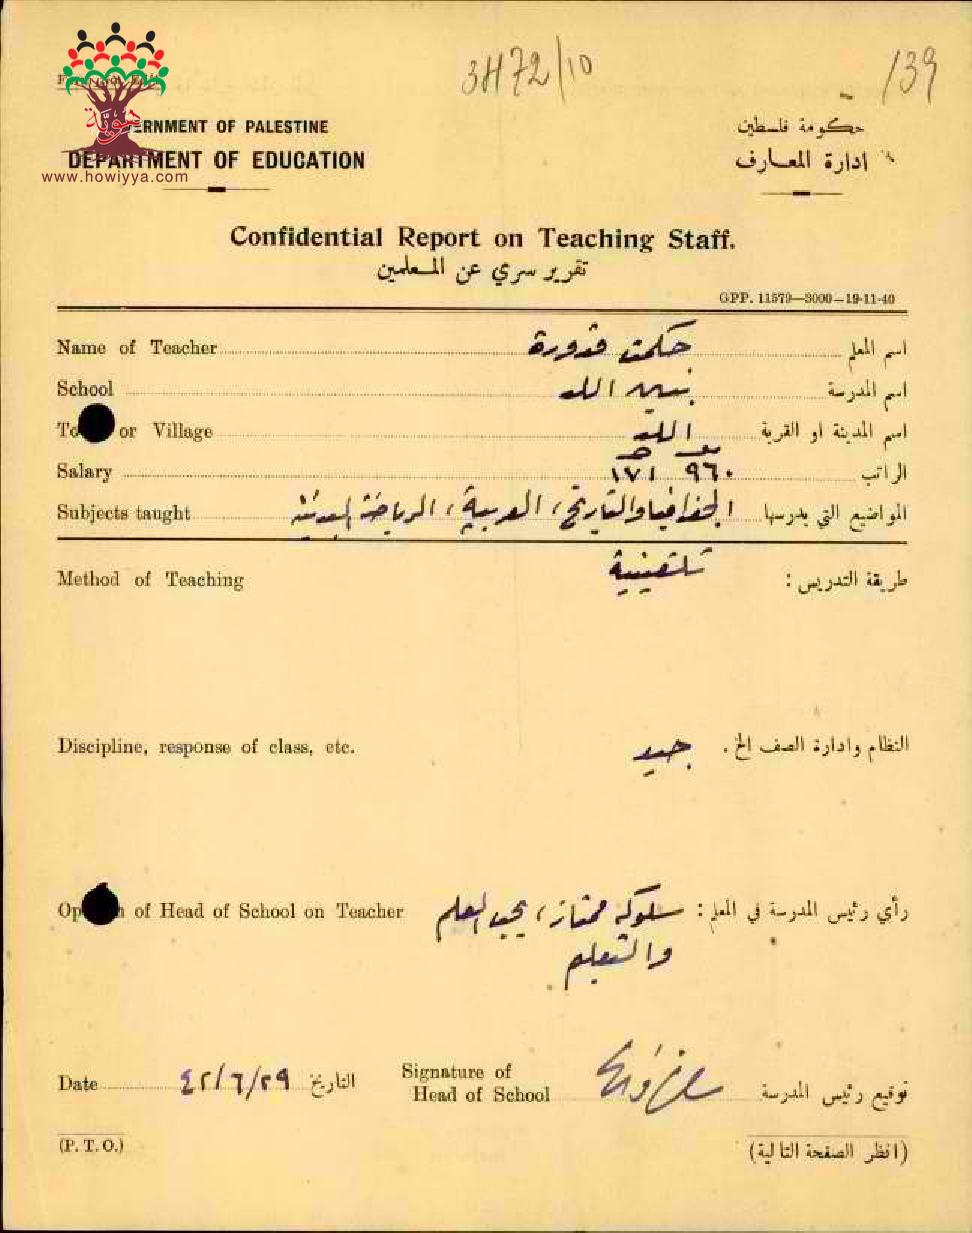 3H72/10
139
هوية
www.howiyya.com
GOVERNMENT OF PALESTINE
حكومة فلسطين
DEPARTMENT OF EDUCATION
ادارة المعارف
Confidential Report on Teaching Staff.
تقرير سري عن المعلمين
GPP. 11579—3000—19-11-40
Name of Teacher حكمت قدورة اسم المعلم
School بنين اللد اسم المدرسة
or Village اللد اسم المدينة او القرية
Salary ٩٦٠ ١٧١ الراتب
Subjects taught الجغرافيا والتاريخ، العربية، الرياضة البدنية المواضيع التي يدرسها
Method of Teaching تلقينية طريقة التدريس :
Discipline, response of class, etc. جيد النظام وادارة الصف الخ .
of Head of School on Teacher سلوكه ممتاز، يحب العلم رأي رئيس المدرسة في المعلم :
والتعليم
Date ٤٢/٦/٢٩ التاريخ Signature of
Head of School توقيع رئيس المدرسة
(P. T. O.) (انظر الصفحة التالية)